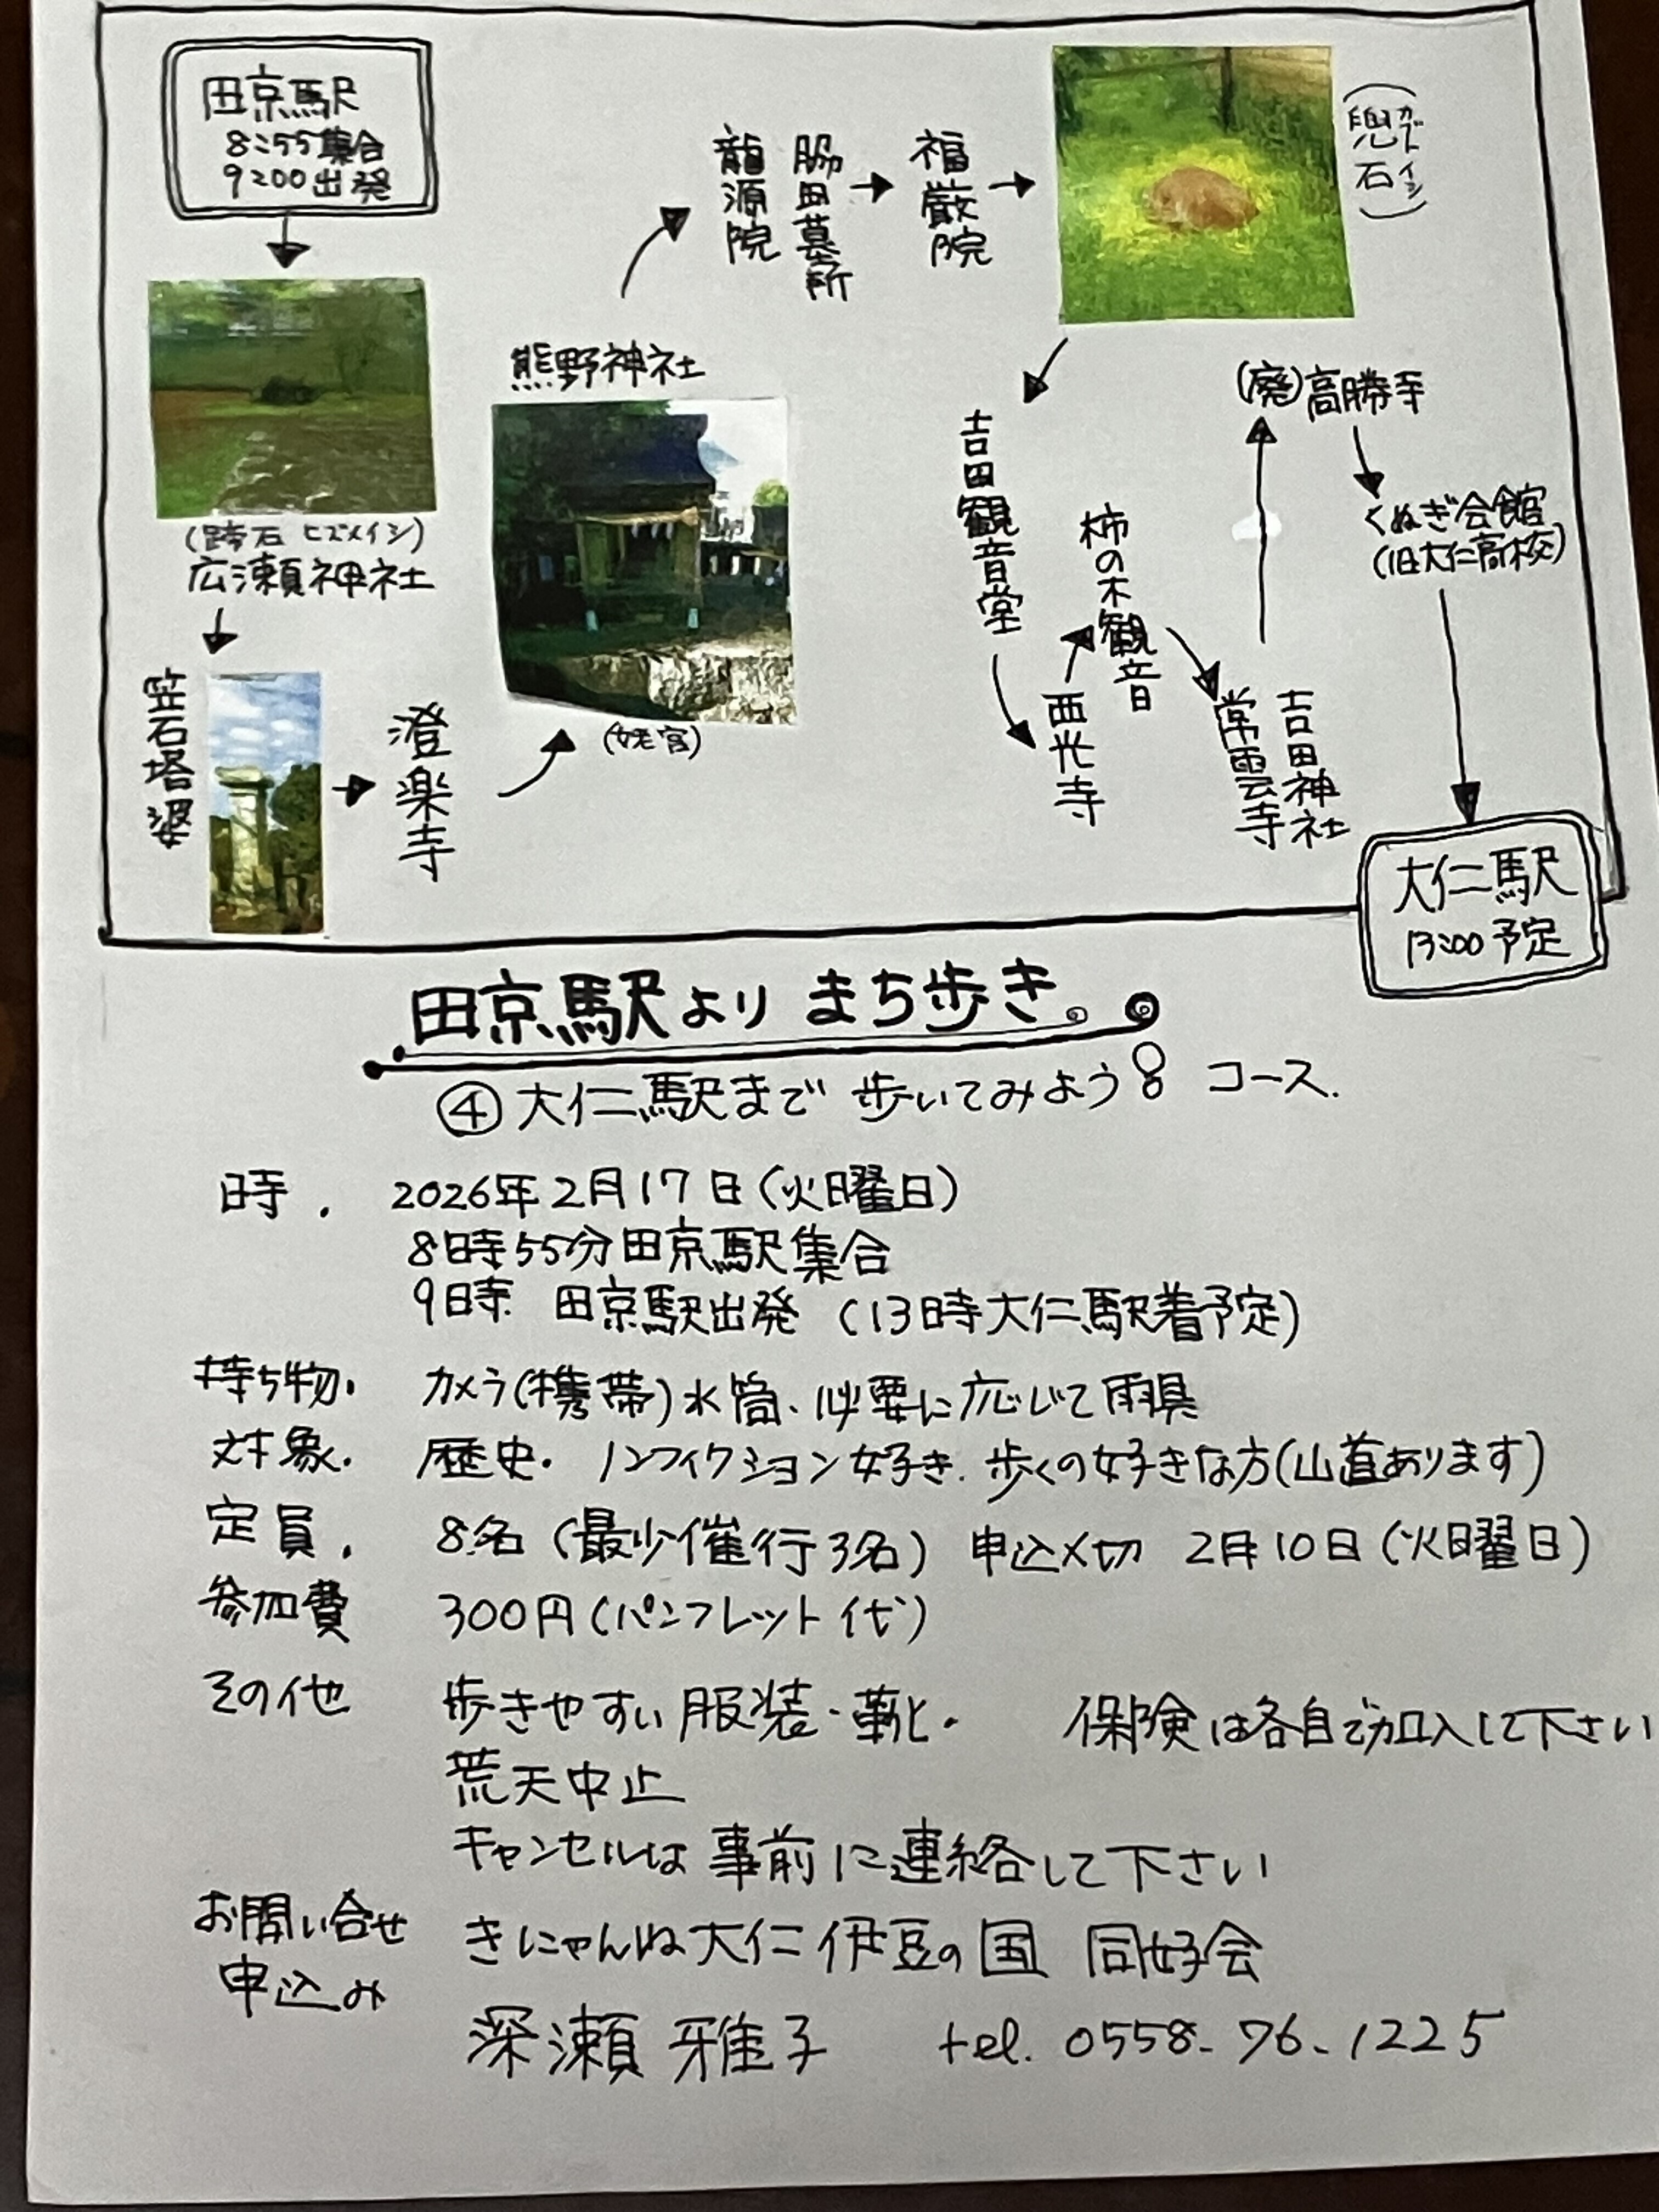 田京駅
8:55集合
9:00出発
(蹄石 ヒズメイシ)
広瀬神社
笠石塔婆
澄楽寺
熊野神社
(姥宮)
龍源院
脇田墓所
福厳院
(兜石 カブトイシ)
吉田観音堂
西光寺
柿の木観音
常雲寺
吉田神社
(廃)高勝寺
くぬぎ会館
(旧大仁高校)
大仁駅
13:00予定
田京駅より まち歩き。
④大仁駅まで 歩いてみよう! コース.
時. 2026年2月17日(火曜日)
8時55分田京駅集合
9時 田京駅出発 (13時大仁駅着予定)
持ち物. カメラ(携帯)水筒、必要に応じて雨具
対象. 歴史・ノンフィクション好き. 歩くの好きな方(山道あります)
定員. 8名(最少催行3名) 申込〆切 2月10日(火曜日)
参加費 300円(パンフレット代)
その他 歩きやすい服装・靴. 保険は各自で加入して下さい
荒天中止
キャンセルは事前に連絡して下さい
お問い合せ きにゃんね大仁伊豆の国 同好会
申込み
深瀬 雅子 tel. 0558-76-1225